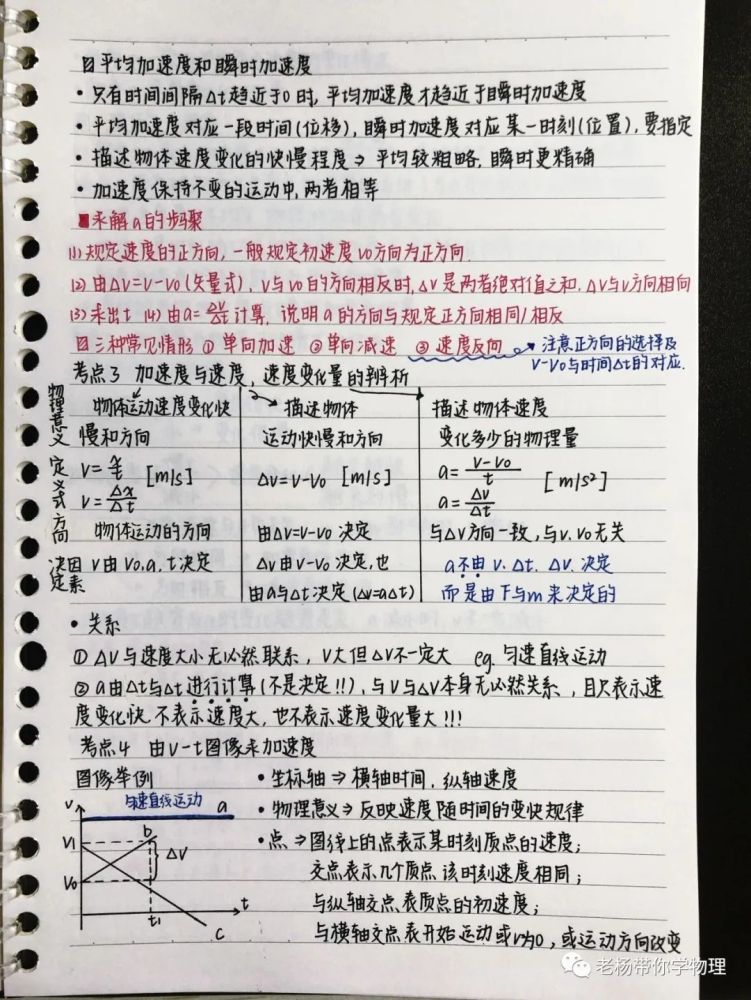 曰平均加速度和瞬时加速度
·只有时间间隔Δt趋近于0时,平均加速度才趋近于瞬时加速度
·平均加速度对应一段时间(位移),瞬时加速度对应某一时刻(位置),要指定
·描述物体速度变化的快慢程度⇒平均较粗略,瞬时更精确
·加速度保持不变的运动中,两者相等
■求解a的步骤
(1)规定速度的正方向,一般规定初速度v0方向为正方向.
(2)由Δv=v-v0(矢量式),v与v0的方向相反时,Δv是两者绝对值之和,Δv与v方向相同
(3)求出t (4)由a=Δv/Δt计算,说明a的方向与规定正方向相同/相反
曰三种常见情形 ①单向加速 ②单向减速 ③速度反向
→注意正方向的选择及
v-v0与时间Δt的对应.
考点3 加速度与速度,速度变化量的辨析
物理意义
物体运动速度变化快
慢和方向
描述物体
运动快慢和方向
描述物体速度
变化多少的物理量
定义式
v=x/t [m/s]
v=Δx/Δt
Δv=v-v0 [m/s]
a=(v-v0)/t [m/s²]
a=Δv/Δt
方向
物体运动的方向
由Δv=v-v0决定
与Δv方向一致,与v.v0无关
决定因素
v由v0,a,t决定
Δv由v-v0决定,也
由a与Δt决定(Δv=aΔt)
a不由v.Δt.Δv.决定
而是由F与m来决定的
·关系
①Δv与速度大小无必然联系,v大但Δv不一定大 eg.匀速直线运动
②a由Δt与Δt进行计算(不是决定!!),与v与Δv本身无必然关系,且只表示速
度变化快.不表示速度大,也不表示速度变化量大!!!
考点4 由v-t图像求加速度
图像举例
·坐标轴⇒横轴时间,纵轴速度
·物理意义⇒反映速度随时间的变快规律
·点⇒图线上的点表示某时刻质点的速度;
交点表示几个质点该时刻速度相同;
与纵轴交点表质点的初速度;
与横轴交点表开始运动或v为0,或运动方向改变
v
匀速直线运动 a
v1
b
Δv
v0
t1
t
c
老杨带你学物理